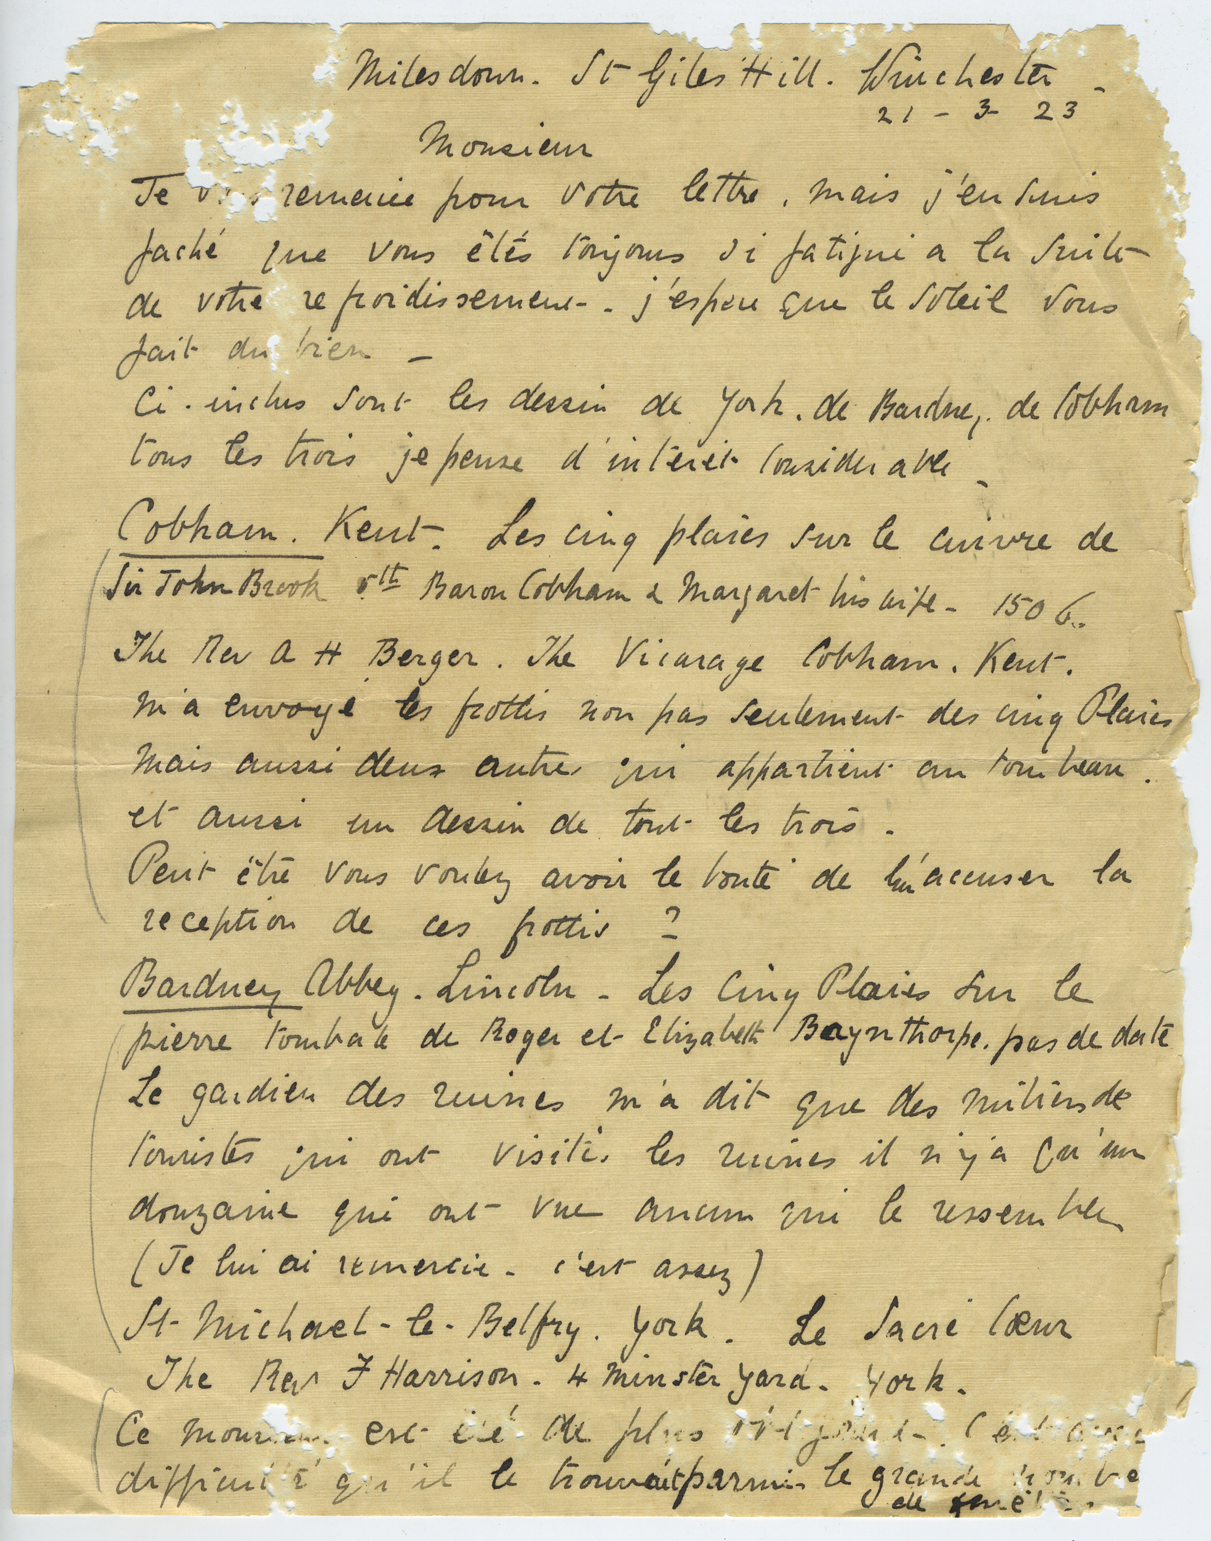 Milesdown. St Giles Hill. Winchester -
21 - 3 - 23
Monsieur
Je remercie pour votre lettre, mais j'en suis
faché que vous êtés toujours si fatigué a la suite
de votre refroidissement - j'espere que le soleil vous
fait du bien -
Ci-inclus sont les dessin de York. de Bardney. de Cobham
tous les trois je pense d'intérêt considerable -
Cobham. Kent. Les cinq plaies sur le cuivre de
Sir John Brook 5th Baron Cobham & Margaret his wife - 1506.
The Rev A H Berger. The Vicarage Cobham. Kent.
m'a envoyé les frottis non pas seulement des cinq Plaies
mais aussi deux autres qui appartient au tombeau.
et aussi un dessin de tout les trois.
Peut être vous voulez avoir le bonté de lui accuser la
reception de ces frottis ?
Bardney Abbey. Lincoln - Les Cinq Plaies sur le
pierre tombale de Roger et Elizabeth Baynthorpe. pas de date
Le gardien des ruines m'a dit que des milliers de
touristes qui ont visités les ruines il n'y a qu'un
douzaine qui ont vue aucun qui le ressembler
(Je lui ai remercie - c'est assez)
St Michael-le-Belfry. York. Le Sacré Cœur
The Rev F Harrison - 4 Minster Yard - York.
Ce est été de plus C'est avec
difficulté qu'il le trouvait parmis le grande nombre
de